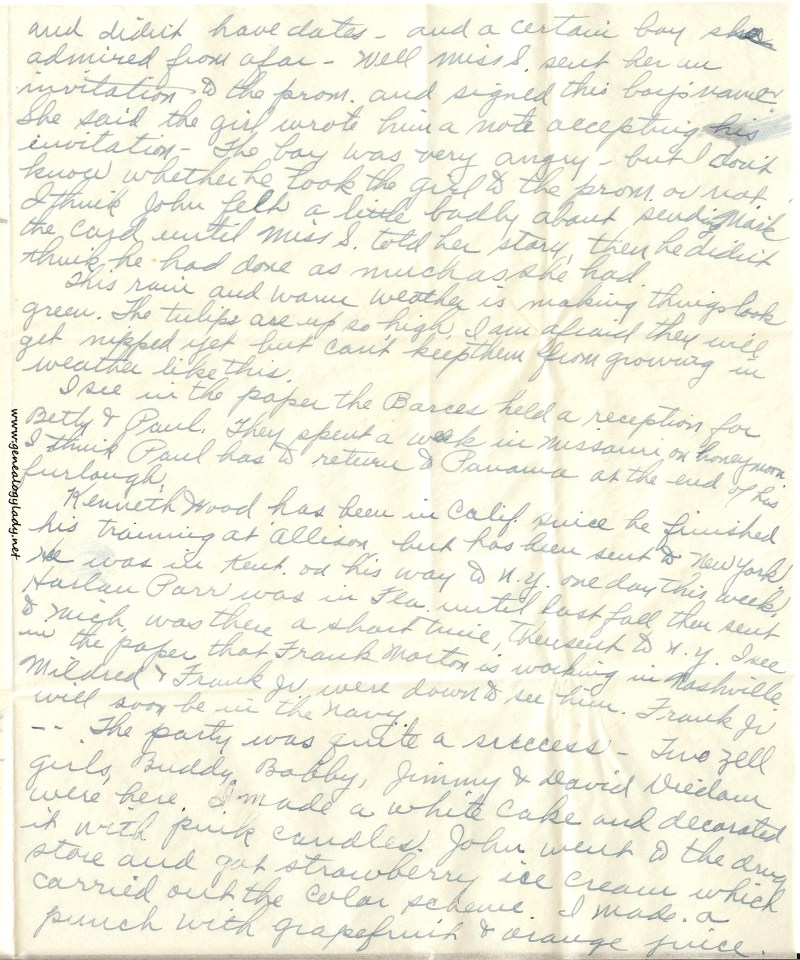 and didn't have dates - and a certain boy she
admired from afar - Well Miss S. sent her an
invitation to the prom. and signed this boy's name.
She said the girl wrote him a note accepting his
invitation - The boy was very angry - but I don't
know whether he took the girl to the prom or not.
I think John felt a little badly about sending Mark
the card until Miss S. told her story, then he didn't
think he had done as much as she had.
This rain and warm weather is making things look
green. The tulips are up so high, I am afraid they will
get nipped yet but can't keep them from growing in
weather like this.
I see in the paper the Barces held a reception for
Betty & Paul. They spent a week in Missouri on honeymoon
I think Paul has to return to Panama at the end of his
furlough.
Kenneth Wood has been in Calif. since he finished
his training at Allison but has been sent to New York
He was in Kent. on his way to N.Y. one day this week.
Harlan Parr was in Fla. until last fall then sent
to Mich, was there a short time, then sent to N.Y. I see
in the paper that Frank Morton is working in Nashville.
Mildred & Frank Jr were down to see him. Frank Jr
will soon be in the Navy.
-- The party was quite a success - Two Zell
girls, Buddy, Bobby, Jimmy & David
were here. I made a white cake and decorated
it with pink candles. John went to the drug
store and got strawberry ice cream which
carried out the color scheme. I made a
punch with grapefruit & orange juice.
www.genealogylady.net